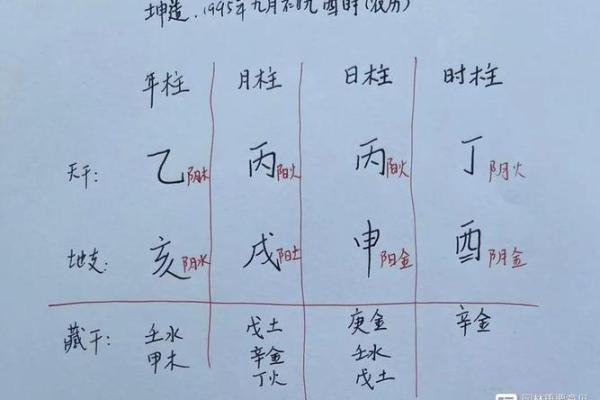 坤造.1995年九月初九 酉時(农历)
年柱 月柱 日柱 时柱
天干: 乙阴木 丙阳火 丙阳火 丁阴火
地支: 亥阴水 戌阳土 申阳金 酉阴金
藏干: 壬水 戊土 庚金 辛金
甲木 辛金 壬水
丁火 戊土